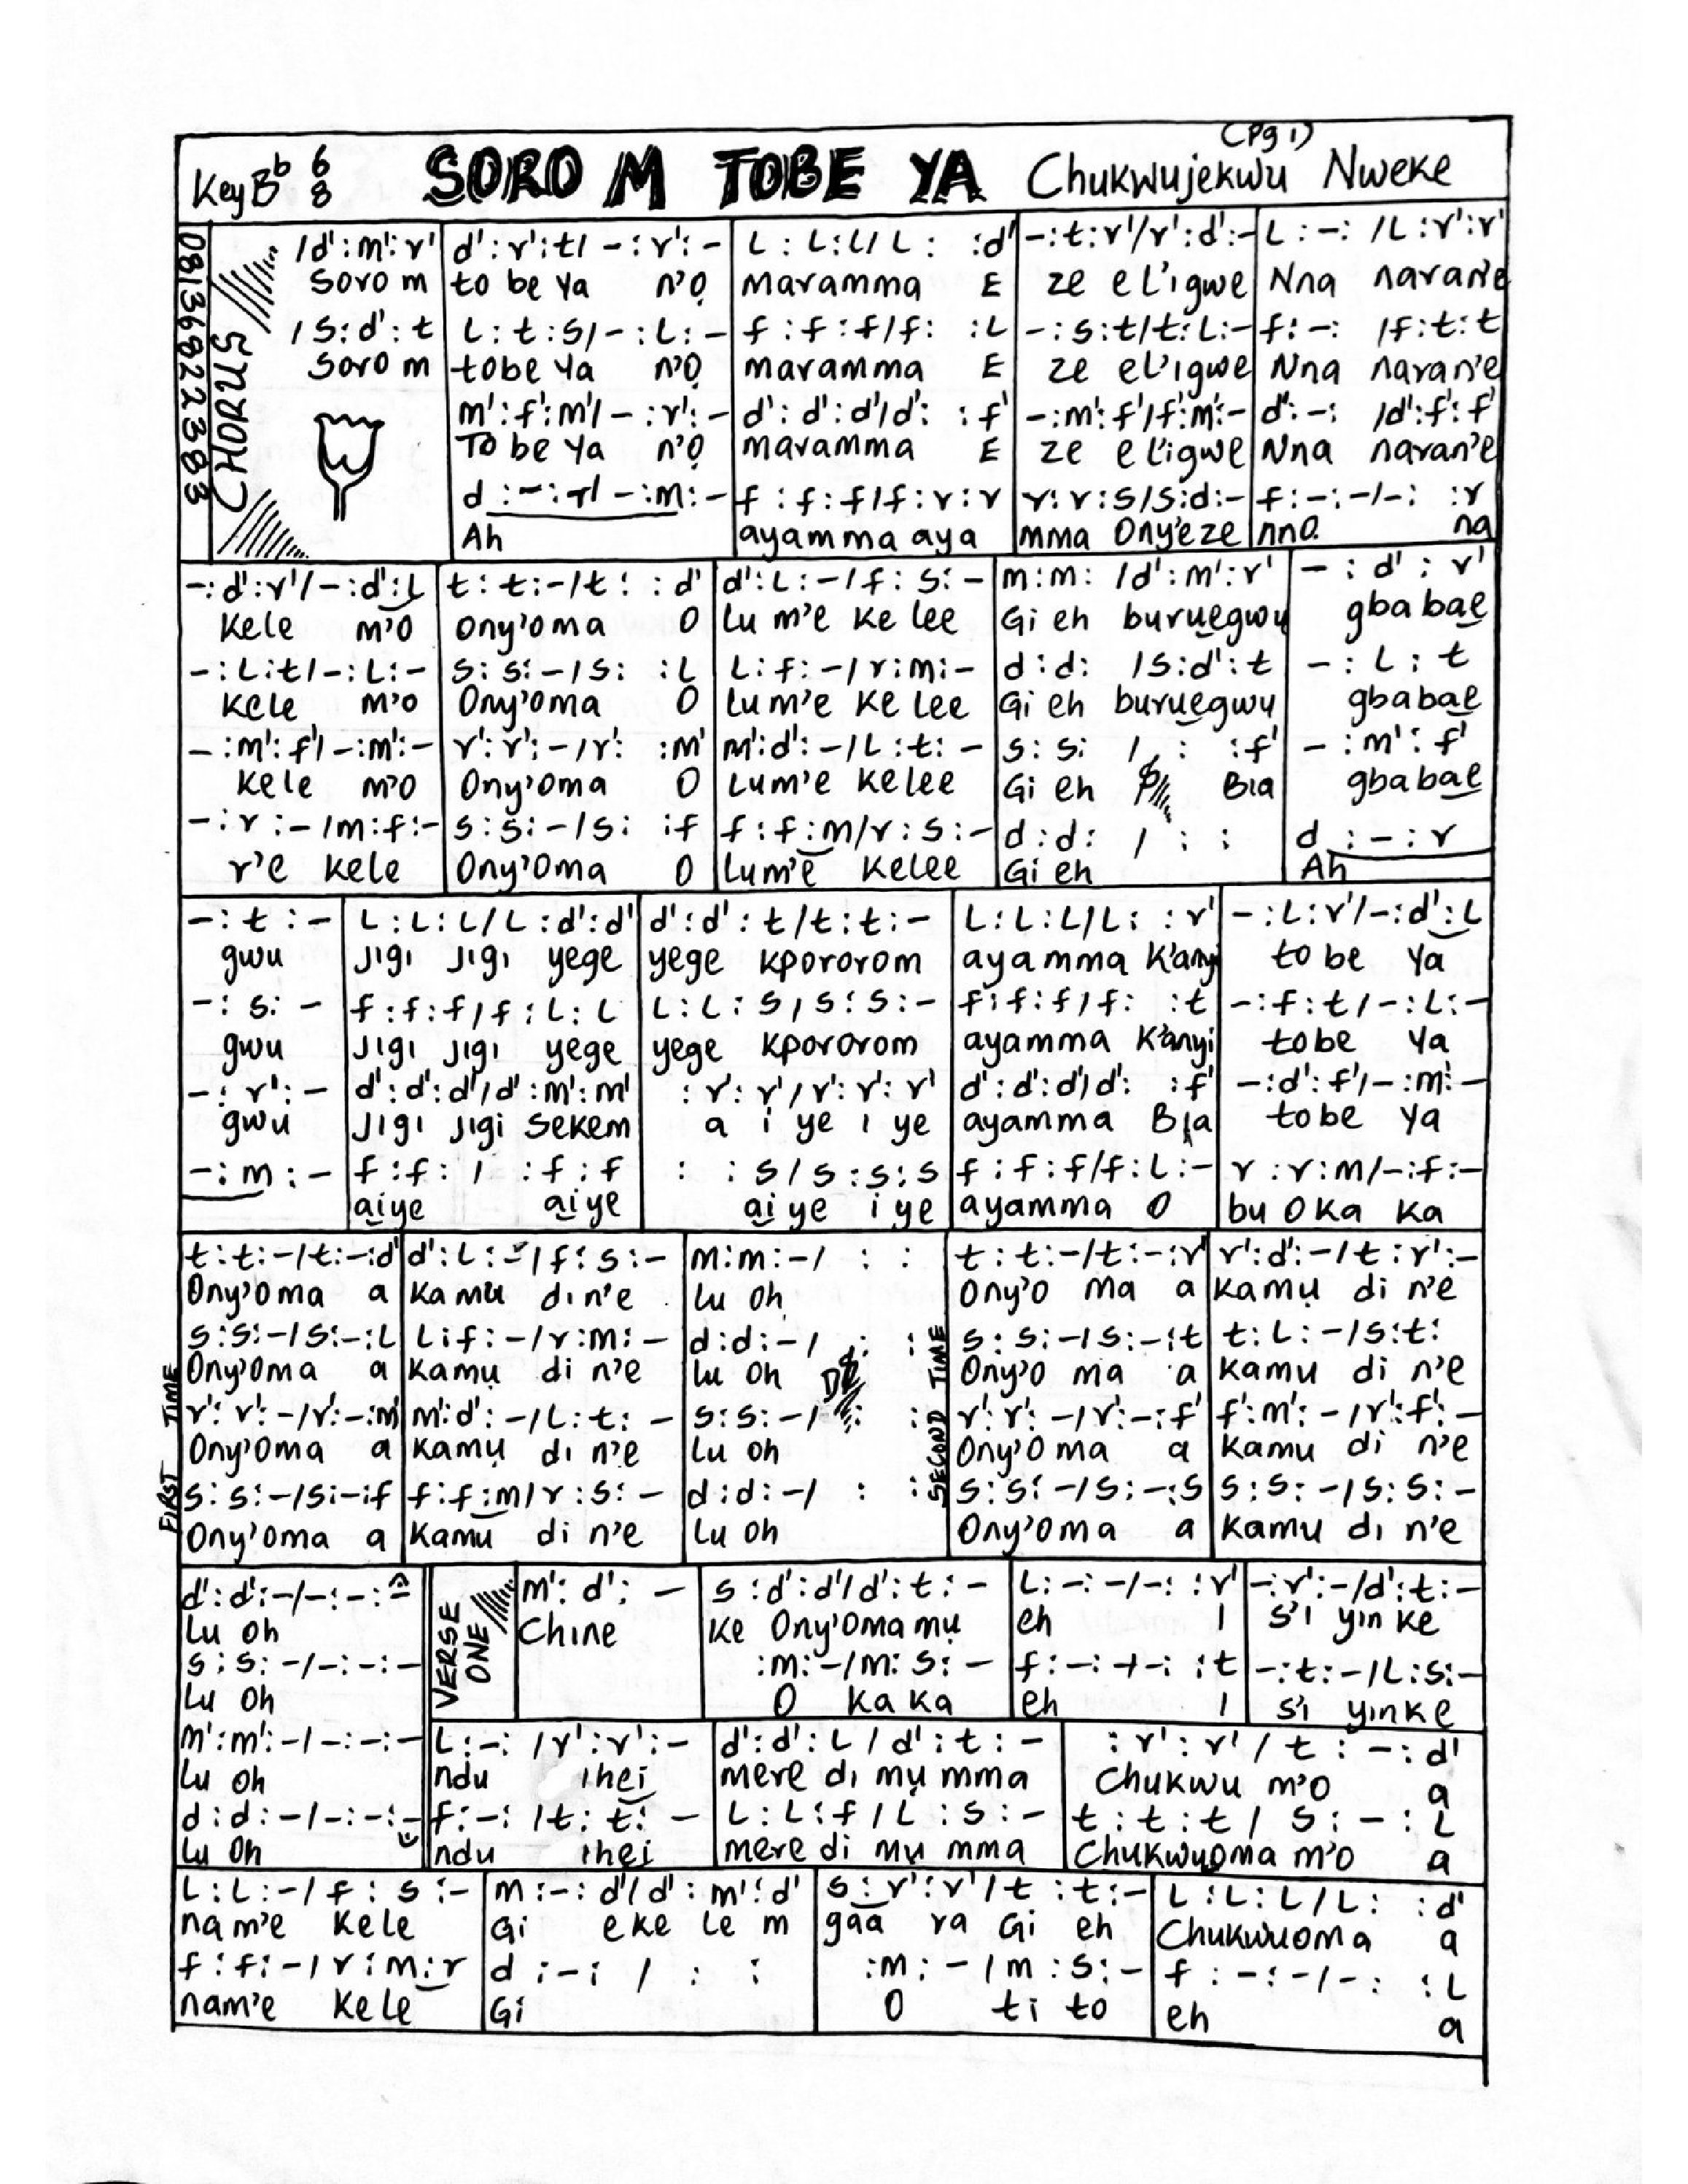 (Pg 1)
Key Bb 6/8 SORO M TOBE YA Chukwujekwu Nweke
08136822383
CHORUS
/d':m':r' | d':r':t/-:r':- | L:L:L/L: :d' | -:t:r'/r':d':- | L:-: /L:r':r'
Soro m | to be Ya n'Ọ | maramma E | ze e L'igwe | Nna naran'e
/S:d':t | L:t:S/-:L:- | f:f:f/f: :L | -:s:t/t:L:- | f:-: /f:t:t
Soro m | tobe Ya n'Ọ | maramma E | ze el'igwe | Nna naran'e
m':f':m'/-:r':- | d':d':d'/d': :f' | -:m':f'/f':m':- | d':-: /d':f':f'
To be Ya n'Ọ | maramma E | ze e l'igwe | Nna naran'e
d:-:r/-:m:- | f:f:f/f:r:r | r:r:s/s:d:- | f:-:-/-: :r
Ah | ayamma aya | mma Ony'eze | nna na
-:d':r'/-:d':L | t:t:-/t: :d' | d':L:-/f:s:- | m:m: /d':m':r' | -:d':r'
Kele m'O | Ony'oma O | lu m'e Ke lee | Gi eh buruegwu | gbabae
-:L:t/-:L:- | s:s:-/s: :L | L:f:-/r:m:- | d:d: /s:d':t | -:L:t
Kele m'O | Ony'oma O | lu m'e Ke lee | Gi eh buruegwu | gbabae
-:m':f'/-:m':- | r':r':-/r': :m' | m':d':-/L:t:- | s:s: / : :f' | -:m':f'
Kele m'O | Ony'oma O | Lum'e Kelee | Gi eh Bia | gbabae
-:r:-/m:f:- | s:s:-/s: :f | f:f:m/r:s:- | d:d: / : : | d:-:r
r'e Kele | Ony'Oma O | lum'e Kelee | Gi eh | Ah
-:t:- | L:L:L/L:d':d' | d':d':t/t:t:- | L:L:L/L: :r' | -:L:r'/-:d':L
gwu | Jigi Jigi yege | yege kpororom | ayamma K'anyi | to be Ya
-:s:- | f:f:f/f:L:L | L:L:s/s:s:- | f:f:f/f: :t | -:f:t/-:L:-
gwu | Jigi Jigi yege | yege Kpororom | ayamma K'anyi | tobe Ya
-:r':- | d':d':d'/d':m':m' | :r':r'/r':r':r' | d':d':d'/d': :f' | -:d':f'/-:m':-
gwu | Jigi Jigi Sekem | a i ye i ye | ayamma Bia | to be Ya
-:m:- | f:f: / :f:f | : :s/s:s:s | f:f:f/f:L:- | r:r:m/-:f:-
aiye aiye | ai ye i ye | ayamma O | bu O Ka Ka
FIRST TIME
t:t:-/t:-:d' | d':L:-/f:s:- | m:m:-/ : : | t:t:-/t:-:r' | r':d':-/t:r':-
Ony'Oma a | Kamụ di n'e | lu oh | Ony'o ma a | Kamụ di n'e
s:s:-/s:-:L | L:f:-/r:m:- | d:d:-/ : : | s:s:-/s:-:t | t:L:-/s:t:
Ony'Oma a | Kamụ di n'e | lu oh | Ony'o ma a | Kamu di n'e
D.S
SECOND TIME
r':r':-/r':-:m' | m':d':-/L:t:- | s:s:-/ : : | r':r':-/r':-:f' | f':m':-/r':f':-
Ony'Oma a | Kamụ di n'e | lu oh | Ony'Oma a | Kamu di n'e
s:s:-/s:-:f | f:f:m/r:s:- | d:d:-/ : : | s:s:-/s:-:s | s:s:-/s:s:-
Ony'oma a | Kamu di n'e | lu oh | Ony'oma a | Kamu di n'e
d':d':-/-:-:-
Lu oh
s:s:-/-:-:-
Lu oh
m':m':-/-:-:-
Lu oh
d:d:-/-:-:-
Lu oh
VERSE ONE
m':d':- | s:d':d'/d':t:- | L:-:-/-: :r' | -:r':-/d':t:-
Chine | Ke Ony'Oma mụ | eh I | s'i yin ke
:m:-/m:s:- | f:-:-/-: :t | -:t:-/L:s:-
O ka ka | eh I | s'i yinke
L:-: /r':r':- | d':d':L/d':t:- | :r':r'/t:-:d'
ndu ihei | mere di mụ mma | Chukwu m'O a
f:-: /t:t:- | L:L:f/L:s:- | t:t:t/s:-:L
ndu ihei | mere di mụ mma | Chukwuoma m'O a
L:L:-/f:s:- | m:-:d'/d':m':d' | s:r':r'/t:t:- | L:L:L/L: :d'
nam'e Kele | Gi eke le m | gaa ra Gi eh | Chukwuoma a
f:f:-/r:m:r | d:-: / : : | :m:-/m:s:- | f:-:-/-: :L
nam'e Kele | Gi | O ti to | eh a